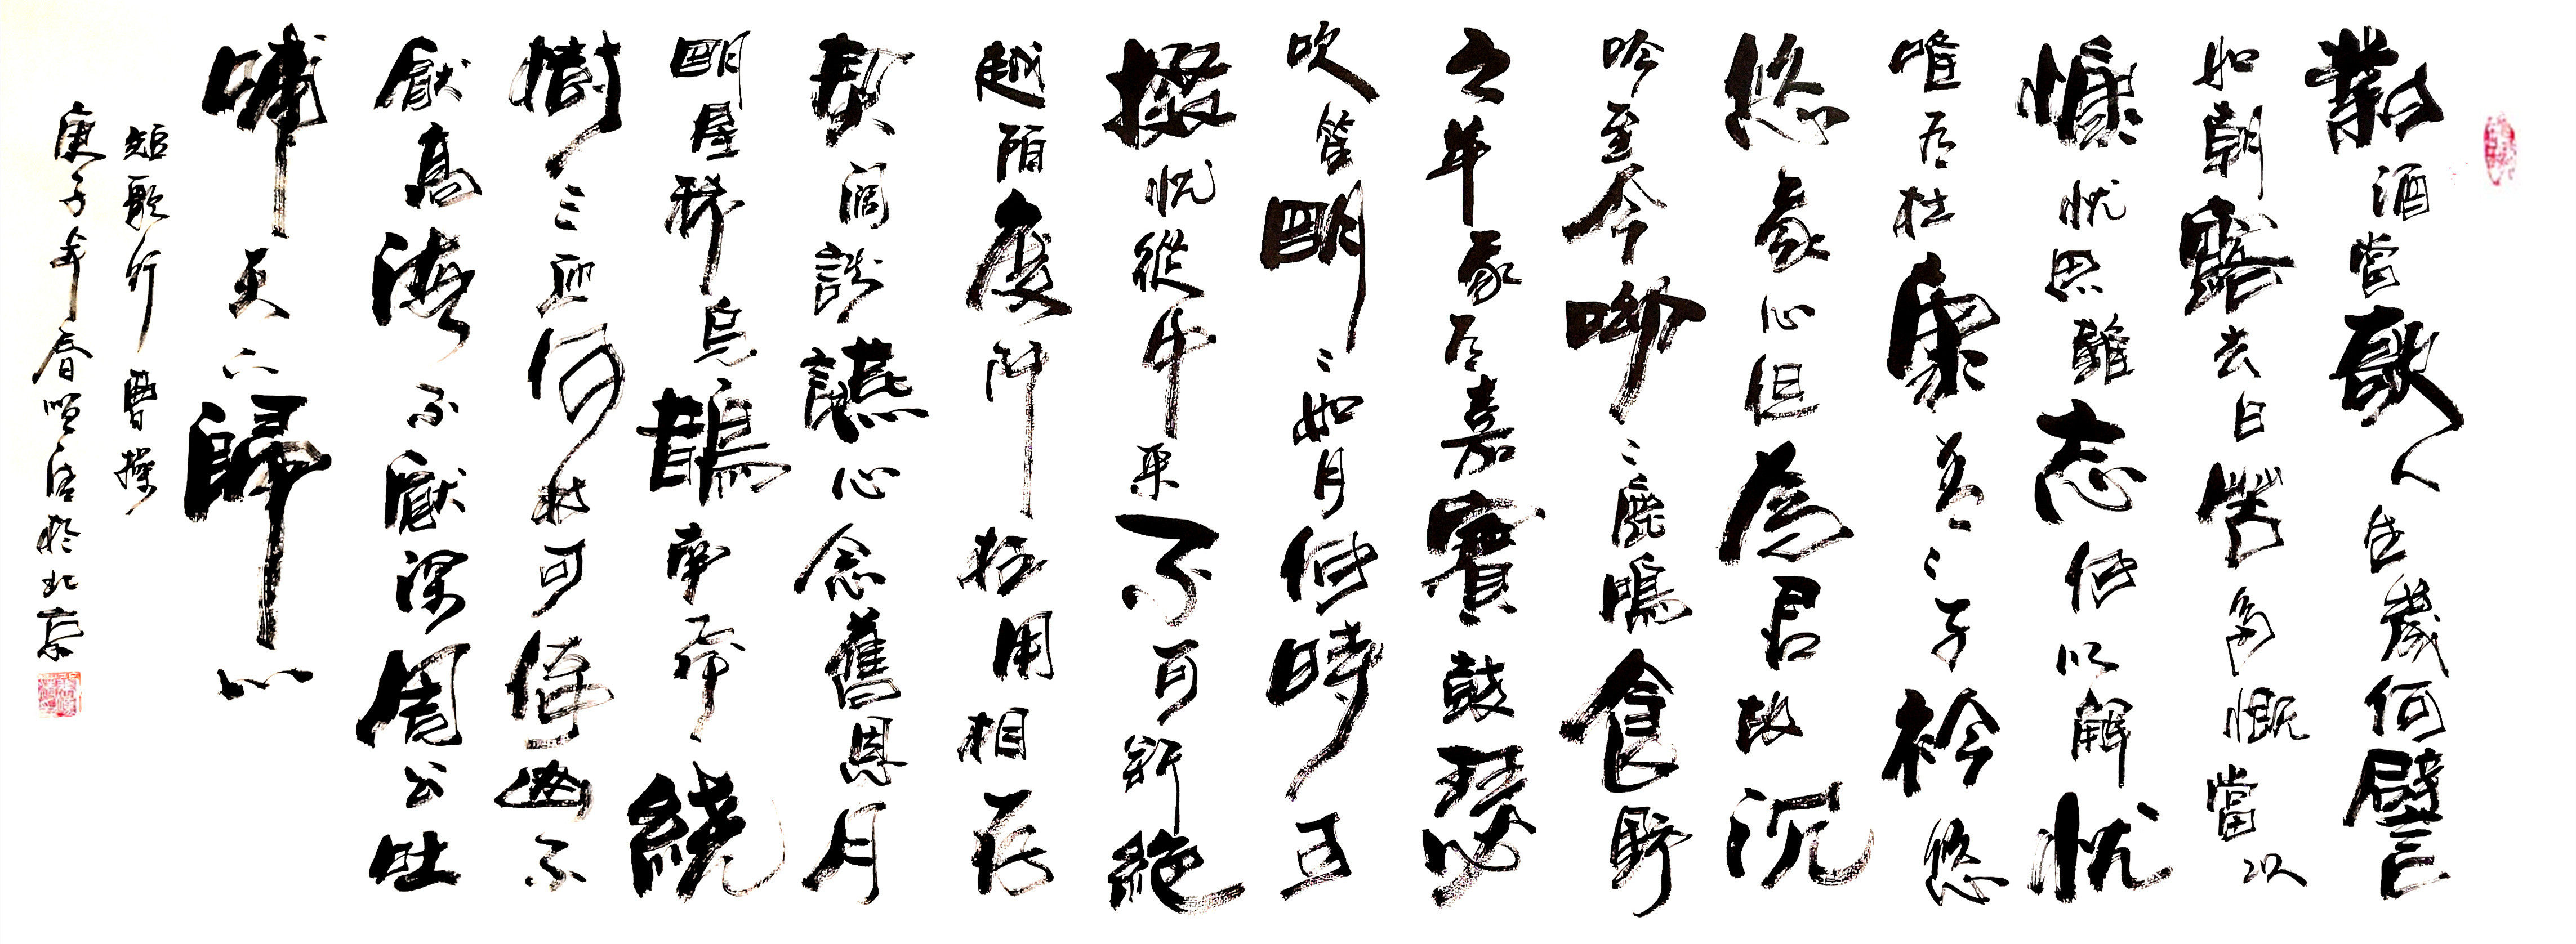 對酒當歌人生幾何譬
如朝露去日苦多慨當以
慷忧思難忘何以解忧
唯有杜康青〻子衿悠
悠我心但為君故沉
吟至今呦〻鹿鳴食野
之苹我有嘉賓鼓瑟
吹笙明〻如月何時可
掇忧從中來不可斷絕
越陌度阡枉用相存
契闊談讌心念舊恩月
明星稀烏鵲南飛繞
樹三迊何枝可依山不
厭高海不厭深周公吐
哺天下歸心
短歌行 曹操
庚子年春於北京